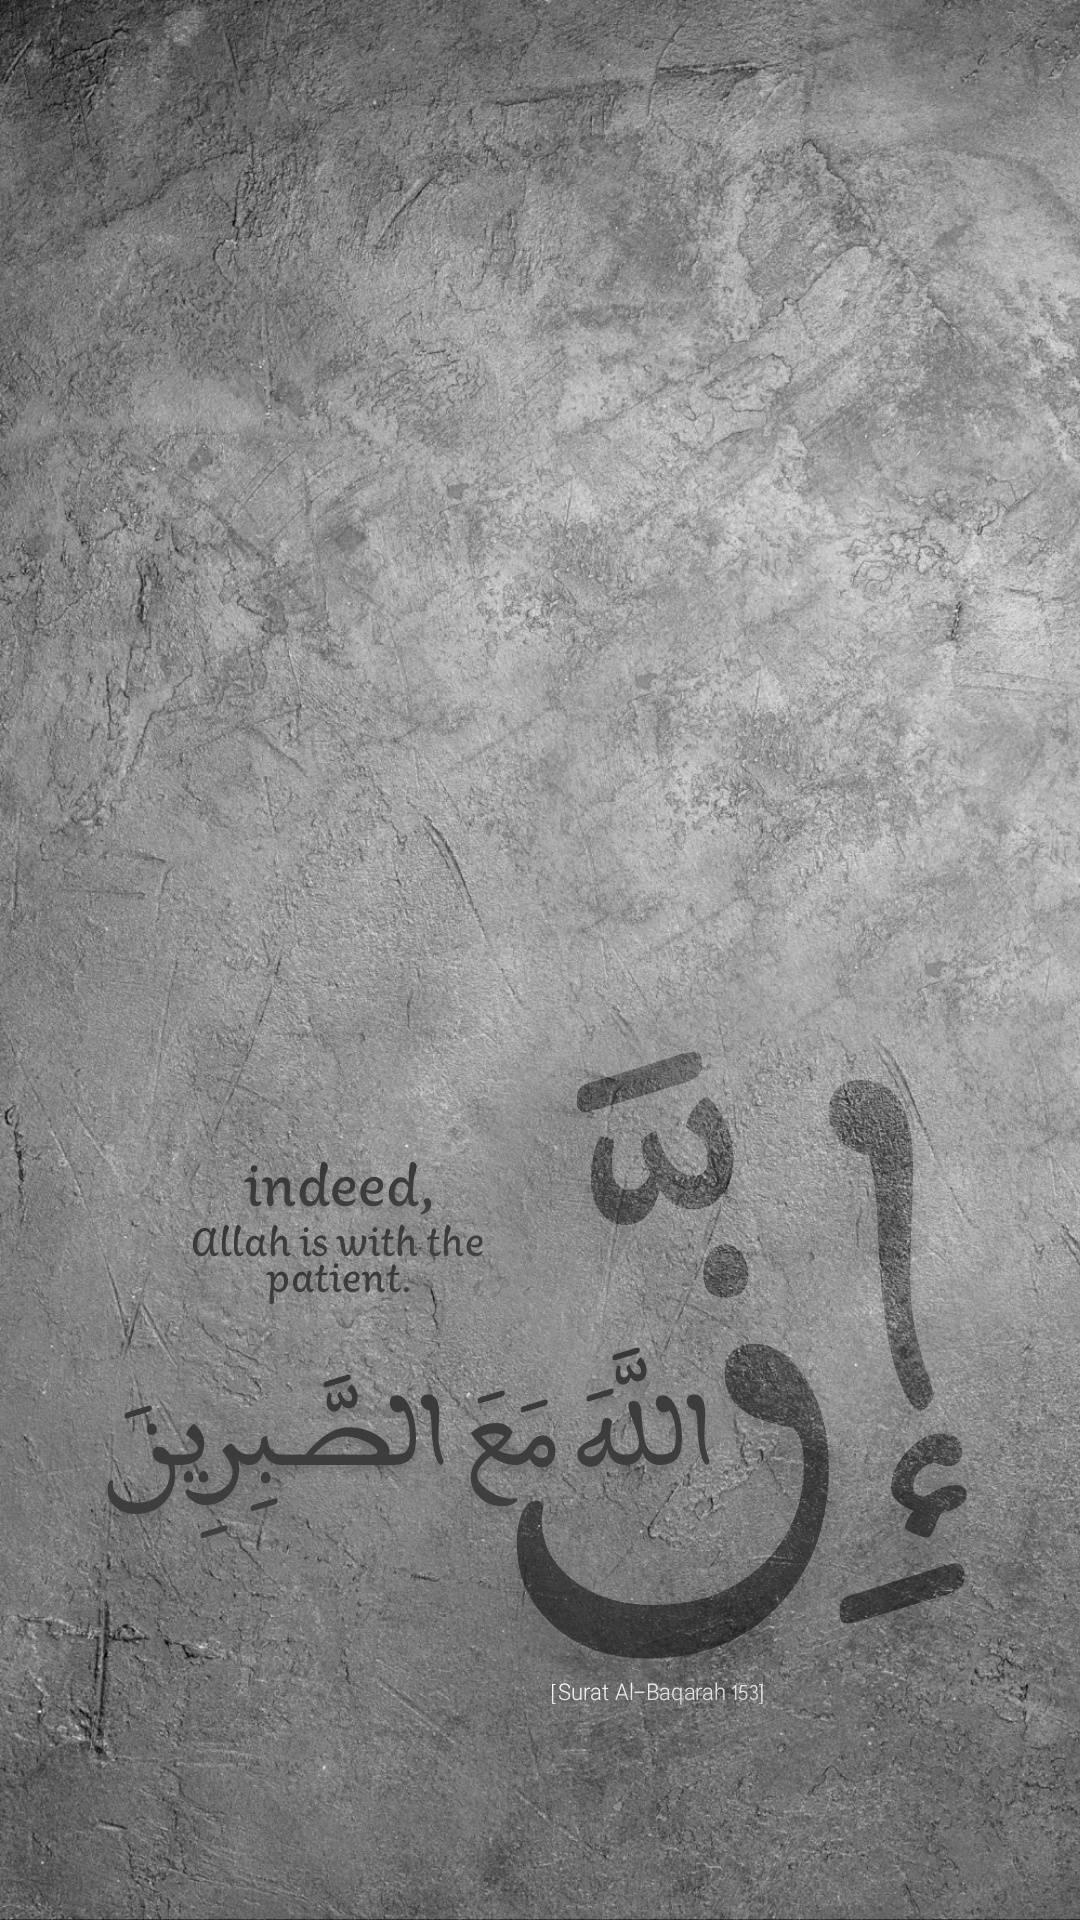 indeed,
Allah is with the
patient.
إِنَّ اللَّهَ مَعَ الصَّبِرِينَ
[Surat Al-Baqarah 153]